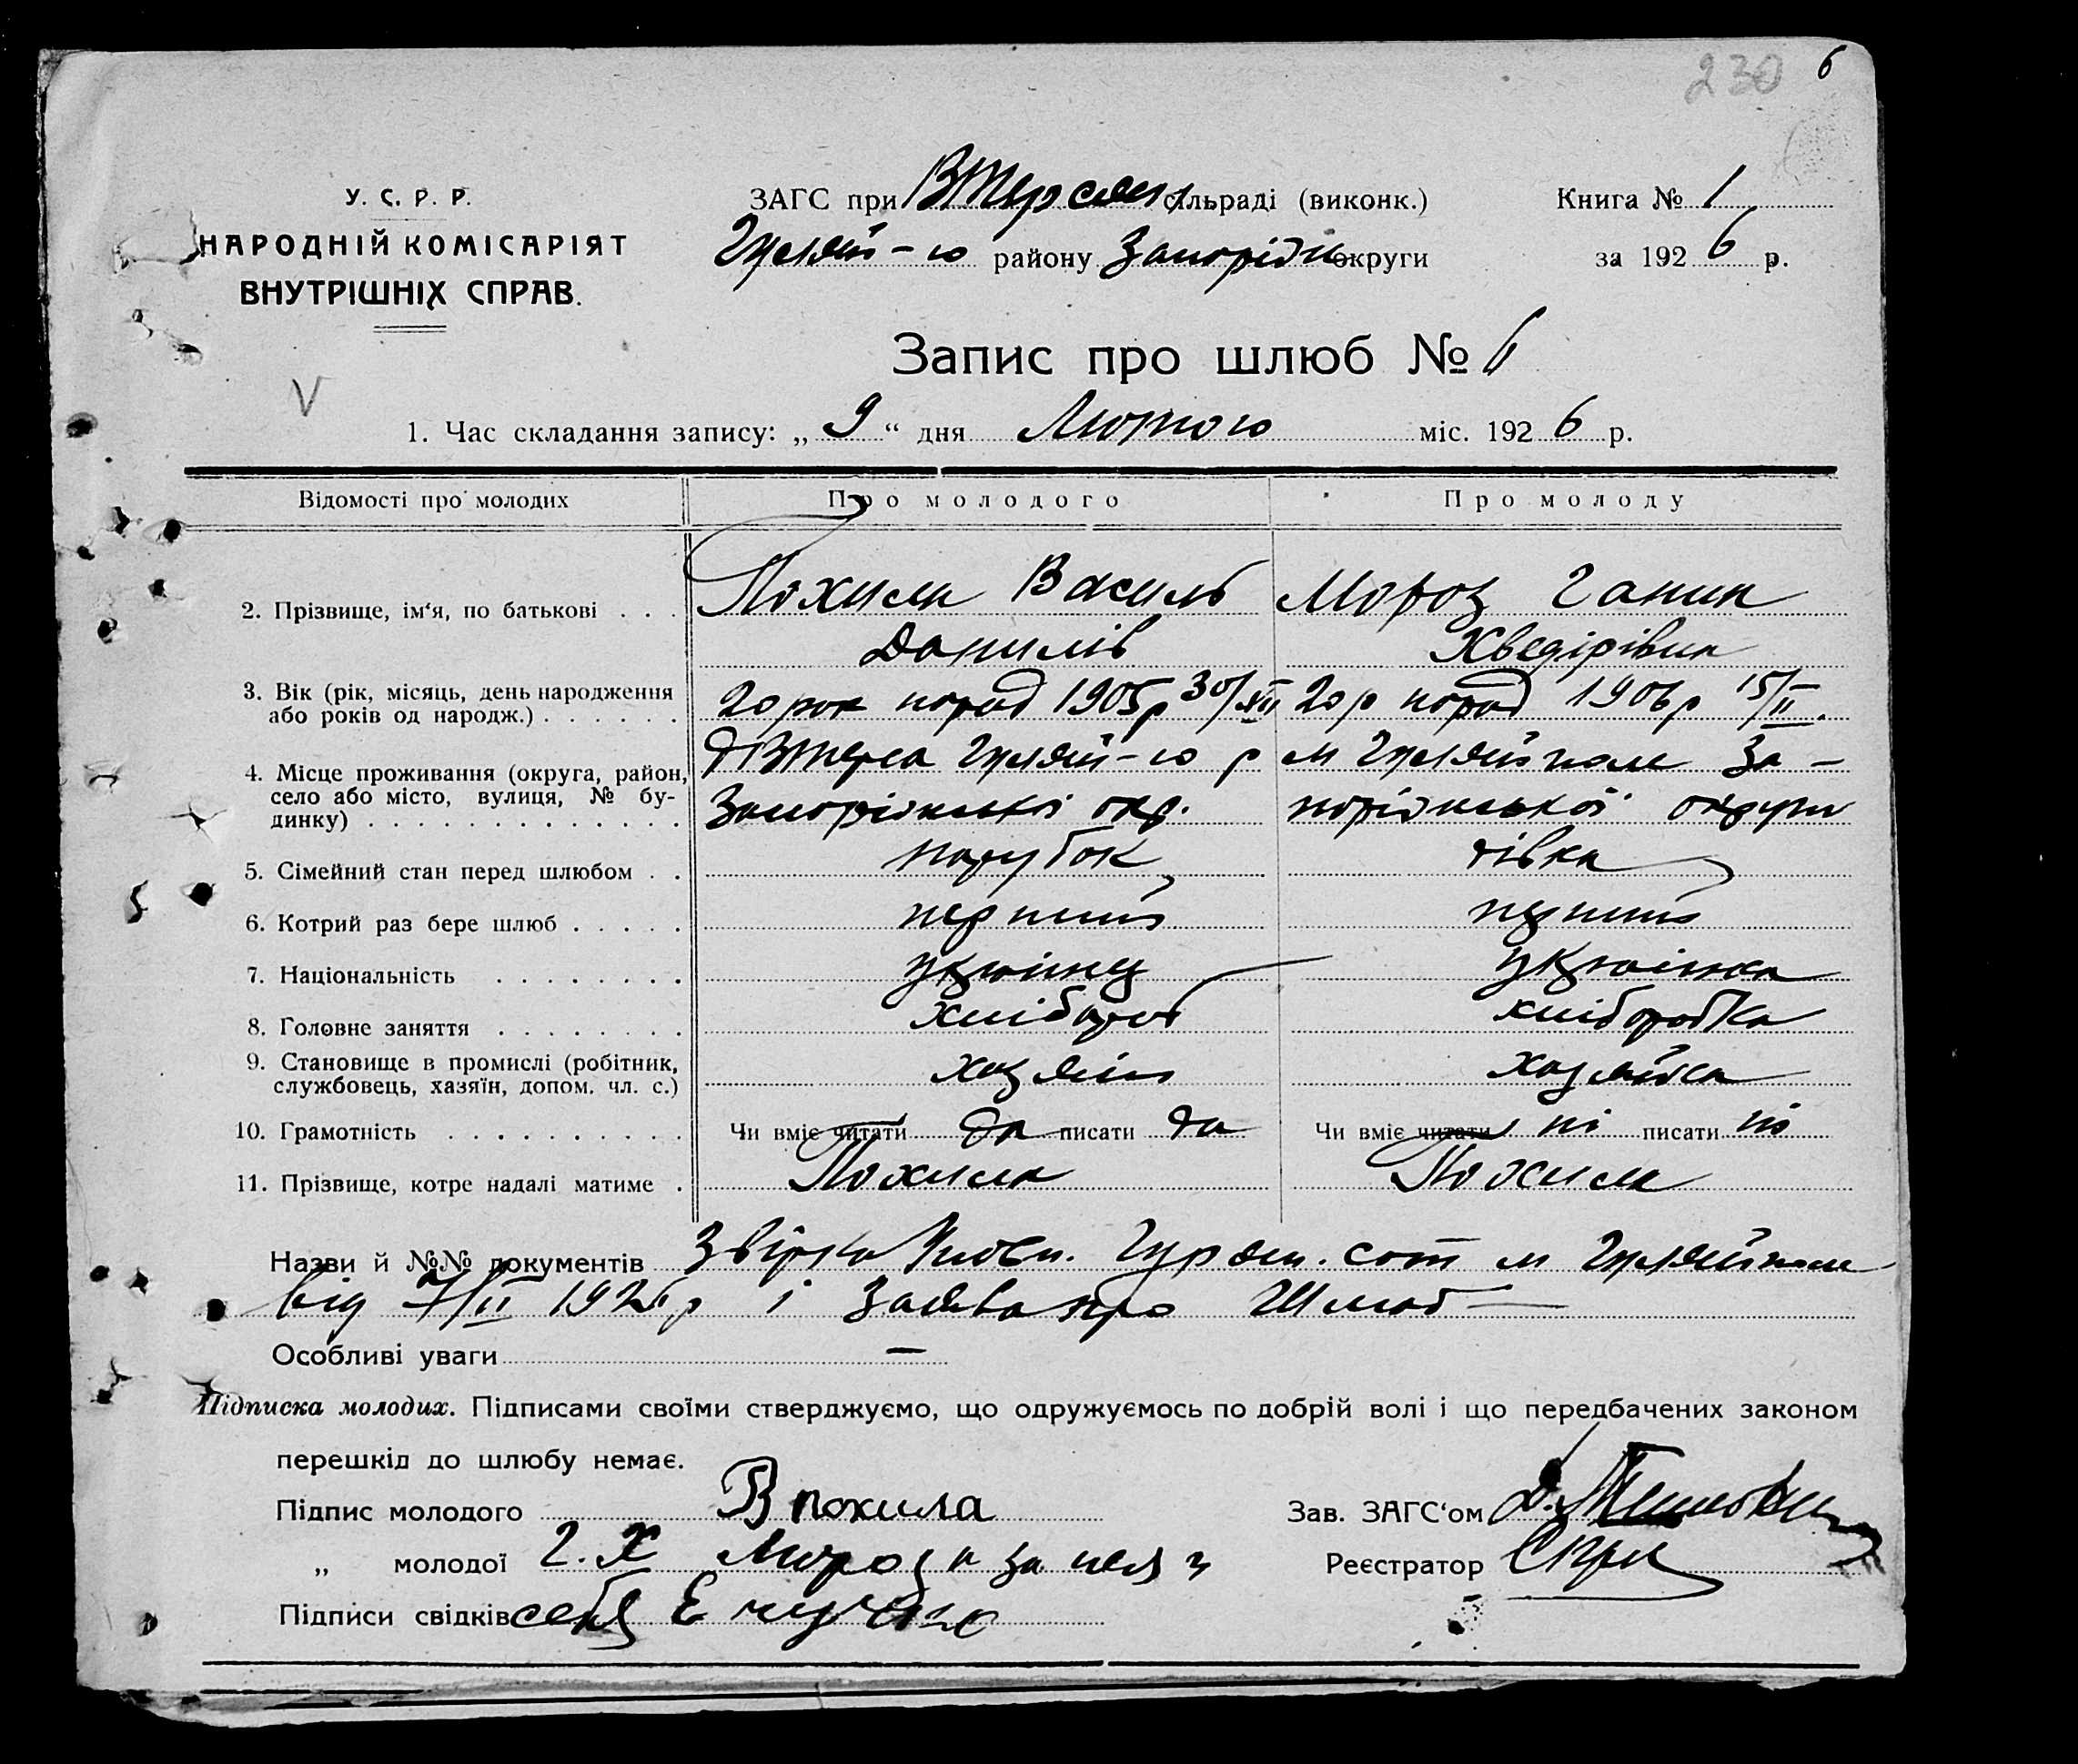 230 6
У. С. Р. Р.
НАРОДНІЙ КОМІСАРІЯТ
ВНУТРІШНІХ СПРАВ.
ЗАГС при ВТерсян сільраді (виконк.)
Гуляй-го району Запоріжк округи
Книга № 1
за 1926 р.
Запис про шлюб № 6
V
1. Час складання запису: „ 9 “ дня Лютого міс. 1926 р.
Відомості про молодих Про молодого Про молоду
2. Прізвище, ім‘я, по батькові . . . Похила Василь Мороз Ганна
Данилів Хведірівна
3. Вік (рік, місяць, день народження 20 рок народ 1905 р 30/XII 20 р народ 1906 р 15/II.
або років од народж.) . . . . . .
4. Місце проживання (округа, район, ВТерса Гуляй-го р м Гуляйполе За-
село або місто, вулиця, № бу- Запоріжської окр. поріжської округи
динку) . . . . . . . . . . . . .
5. Сімейний стан перед шлюбом . . парубок дівка
6. Котрий раз бере шлюб . . . . . перший перший
7. Національність . . . . . . . . українец українка
8. Головне заняття . . . . . . . . хлібороб хліборобка
9. Становище в промислі (робітник, хазяїн хазяйка
службовець, хазяїн, допом. чл. с.)
10. Грамотність . . . . . . . . . . Чи вміє читати да писати да Чи вміє читати ні писати ні
11. Прізвище, котре надалі матиме . Похила Похила
Назви й №№ документів сот м Гуляйполе
від 7/II 1926 р і Заява про Шлюб
Особливі уваги —
Підписка молодих. Підписами своїми стверджуємо, що одружуємось по добрій волі і що передбачених законом
перешкід до шлюбу немає.
Підпис молодого В похила Зав. ЗАГС‘ом
„ молодої Г. Х Мороз а за нея Реєстратор
Підписи свідків